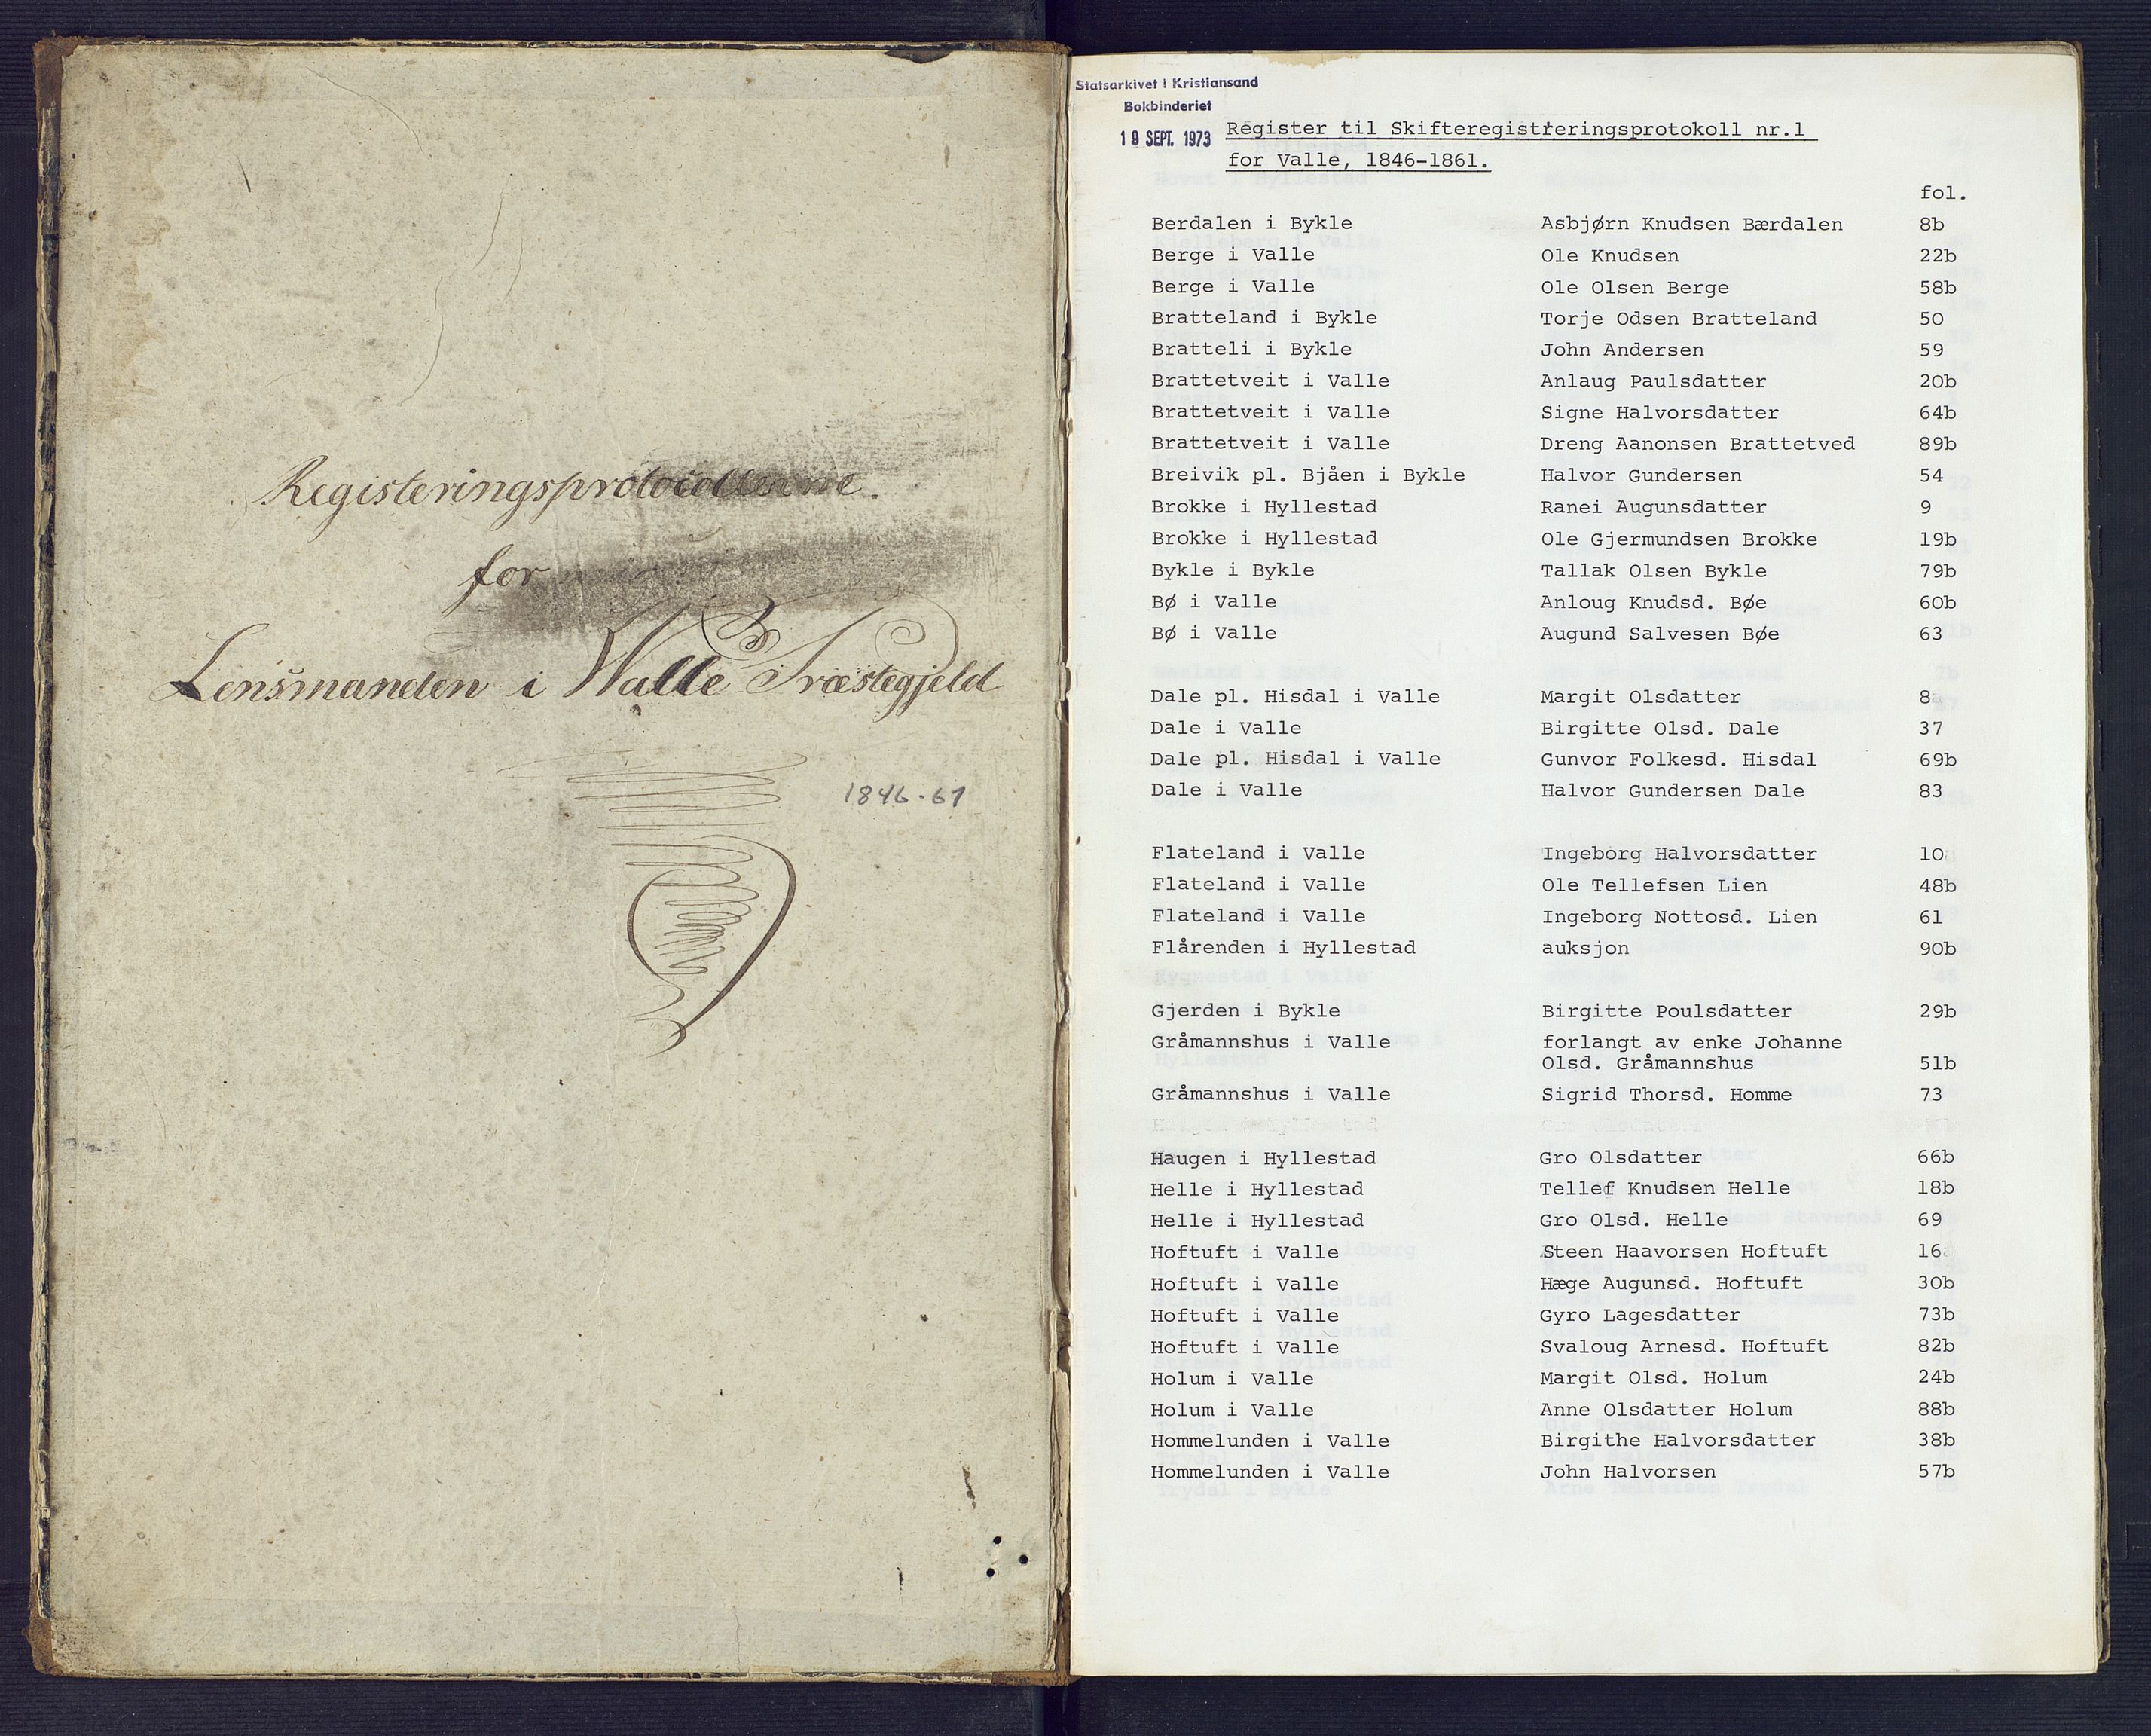 Registeringsprotocollerne.
for
Lensmanden i Walle Præstegjeld
1846-61
Statsarkivet i Kristiansand
Bokbinderiet
19 SEPT. 1973
Register til Skifteregistreringsprotokoll nr.1
for Valle, 1846-1861.
fol.
Berdalen i Bykle Asbjørn Knudsen Bærdalen 8b
Berge i Valle Ole Knudsen 22b
Berge i Valle Ole Olsen Berge 58b
Bratteland i Bykle Torje Odsen Bratteland 50
Bratteli i Bykle John Andersen 59
Brattetveit i Valle Anlaug Paulsdatter 20b
Brattetveit i Valle Signe Halvorsdatter 64b
Brattetveit i Valle Dreng Aanonsen Brattetved 89b
Breivik pl. Bjåen i Bykle Halvor Gundersen 54
Brokke i Hyllestad Ranei Augunsdatter 9
Brokke i Hyllestad Ole Gjermundsen Brokke 19b
Bykle i Bykle Tallak Olsen Bykle 79b
Bø i Valle Anloug Knudsd. Bøe 60b
Bø i Valle Augund Salvesen Bøe 63
Dale pl. Hisdal i Valle Margit Olsdatter 8
Dale i Valle Birgitte Olsd. Dale 37
Dale pl. Hisdal i Valle Gunvor Folkesd. Hisdal 69b
Dale i Valle Halvor Gundersen Dale 83
Flateland i Valle Ingeborg Halvorsdatter 10
Flateland i Valle Ole Tellefsen Lien 48b
Flateland i Valle Ingeborg Nottosd. Lien 61
Flårenden i Hyllestad auksjon 90b
Gjerden i Bykle Birgitte Poulsdatter 29b
Gråmannshus i Valle forlangt av enke Johanne
Olsd. Gråmannshus 51b
Gråmannshus i Valle Sigrid Thorsd. Homme 73
Haugen i Hyllestad Gro Olsdatter 66b
Helle i Hyllestad Tellef Knudsen Helle 18b
Helle i Hyllestad Gro Olsd. Helle 69
Hoftuft i Valle Steen Haavorsen Hoftuft 16
Hoftuft i Valle Hæge Augunsd. Hoftuft 30b
Hoftuft i Valle Gyro Lagesdatter 73b
Hoftuft i Valle Svaloug Arnesd. Hoftuft 82b
Holum i Valle Margit Olsd. Holum 24b
Holum i Valle Anne Olsdatter Holum 88b
Hommelunden i Valle Birgithe Halvorsdatter 38b
Hommelunden i Valle John Halvorsen 57b